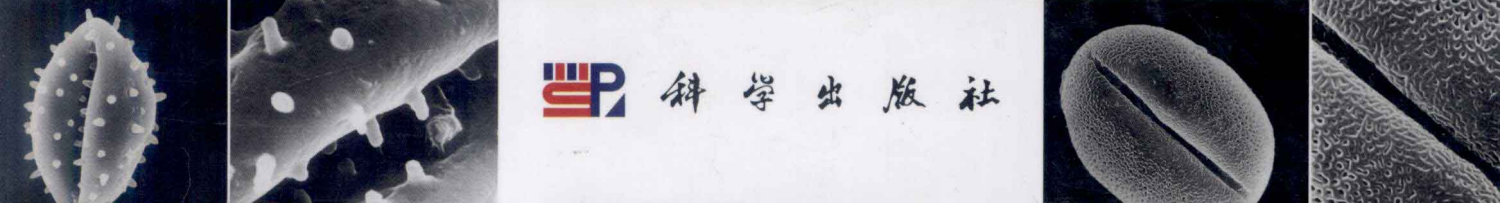 科学出版社